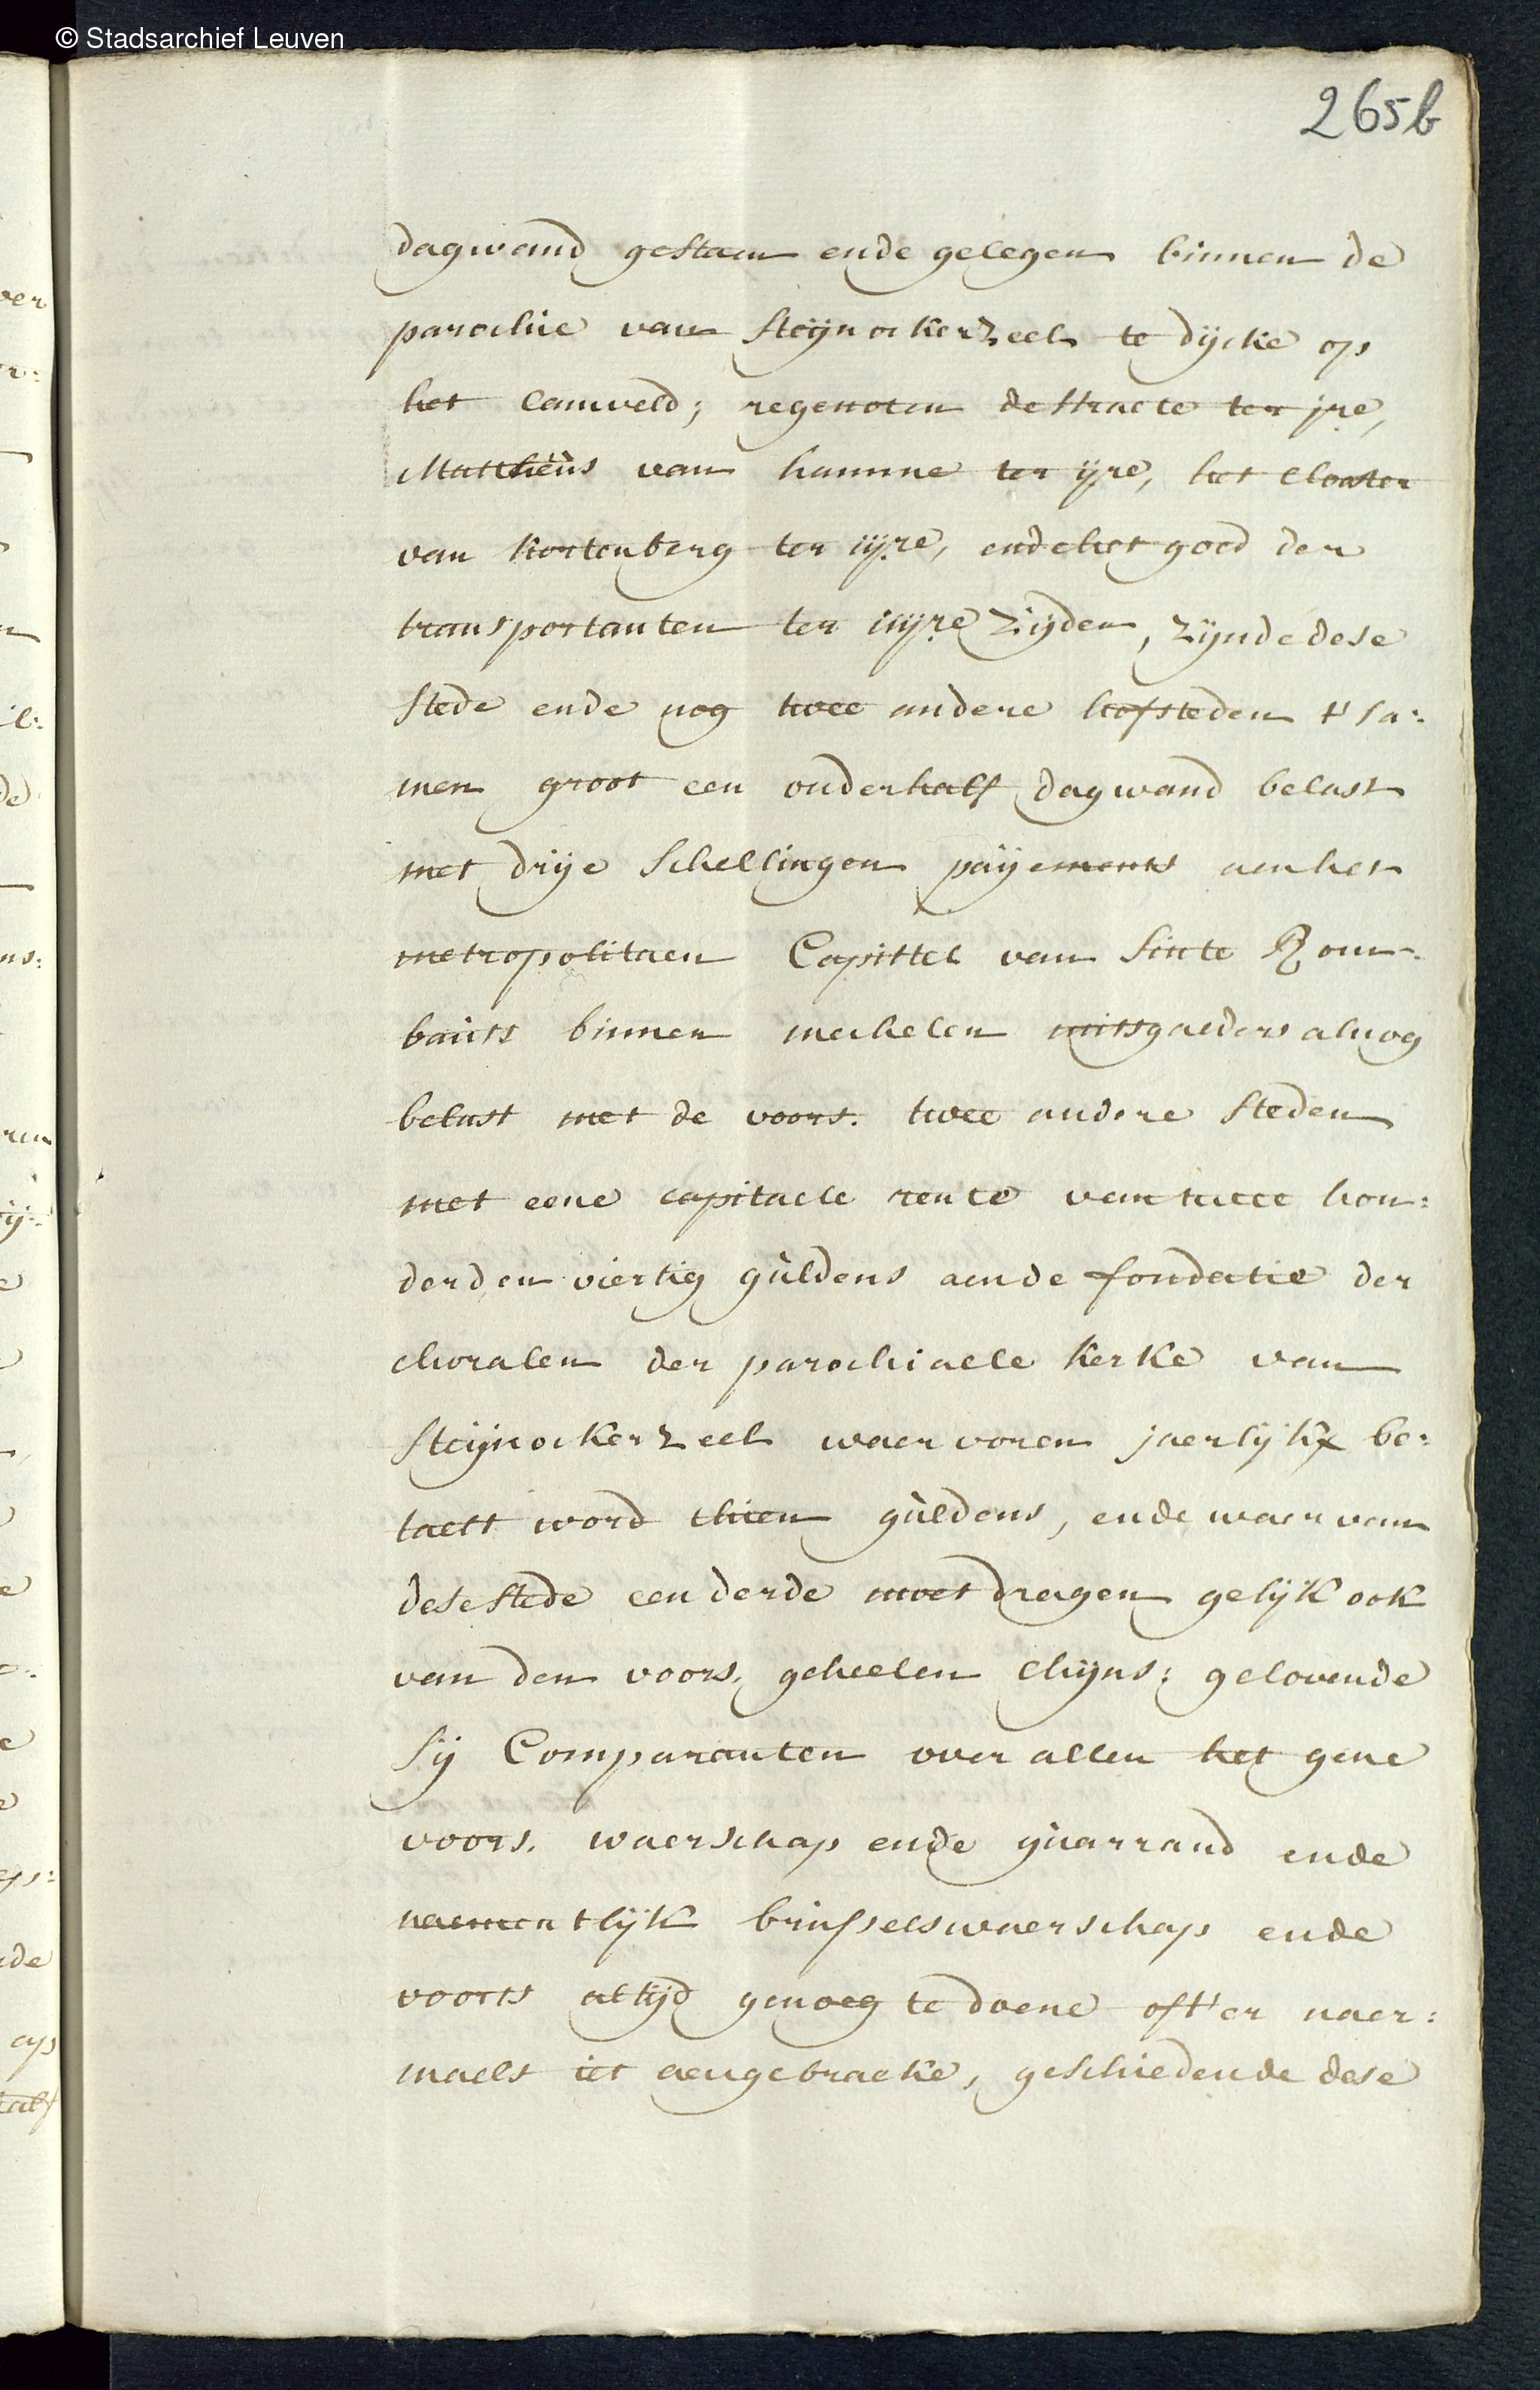 © Stadsarchief Leuven
265b
dagwand gestaen ende gelegen binnen de
parochie van Steijnockerzeel te dijcke op
het Camveld; regenoten de straete ter jre,
Mattheùs van hamme ter ijre, het Clooster
van Kortenberg ter iijre, ende het goed der
transportanten ter iiijre Zijden, zijnde dese
stede ende nog twee andere hofsteden t'sa:
men groot een onderhalf dagwand belast
met drije Schellingen paijements aen het
metropolitaen Capittel van Sinte Rom-
baùts binnen mechelen mitsgaeders alnog
belast met de voors. twee andere steden
met eene capitaele rente van twee hon:
derden viertig gùldens aen de fondatie der
choralen der parochiaele Kerke van
Steijnockerzeel waervoren jaerlijkx be:
taelt word thien gùldens, ende waer van
dese stede een derde moet dragen gelijk ook
van den voors. geheelen chijns: gelovende
sij Comparanten over allen het gene
voors. waerschap ende gùarrand ende
naementlijk brùsselswaerschap ende
voorts altijd genoeg te doene oft'er naer:
maels iet aengebraeke, geschiedende dese